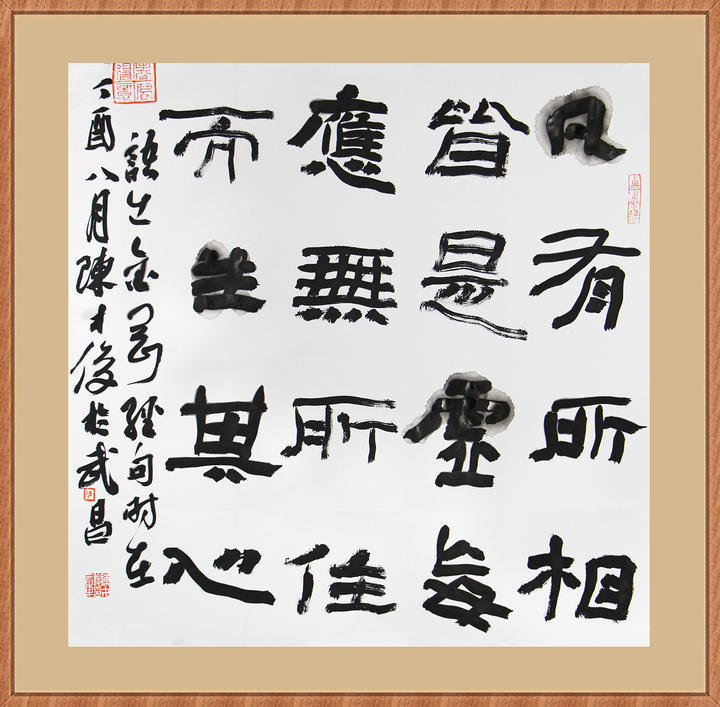 凡有所相
皆是虛妄
應無所住
而生其心
語出金剛經句時在
丁酉八月陳才俊於武昌